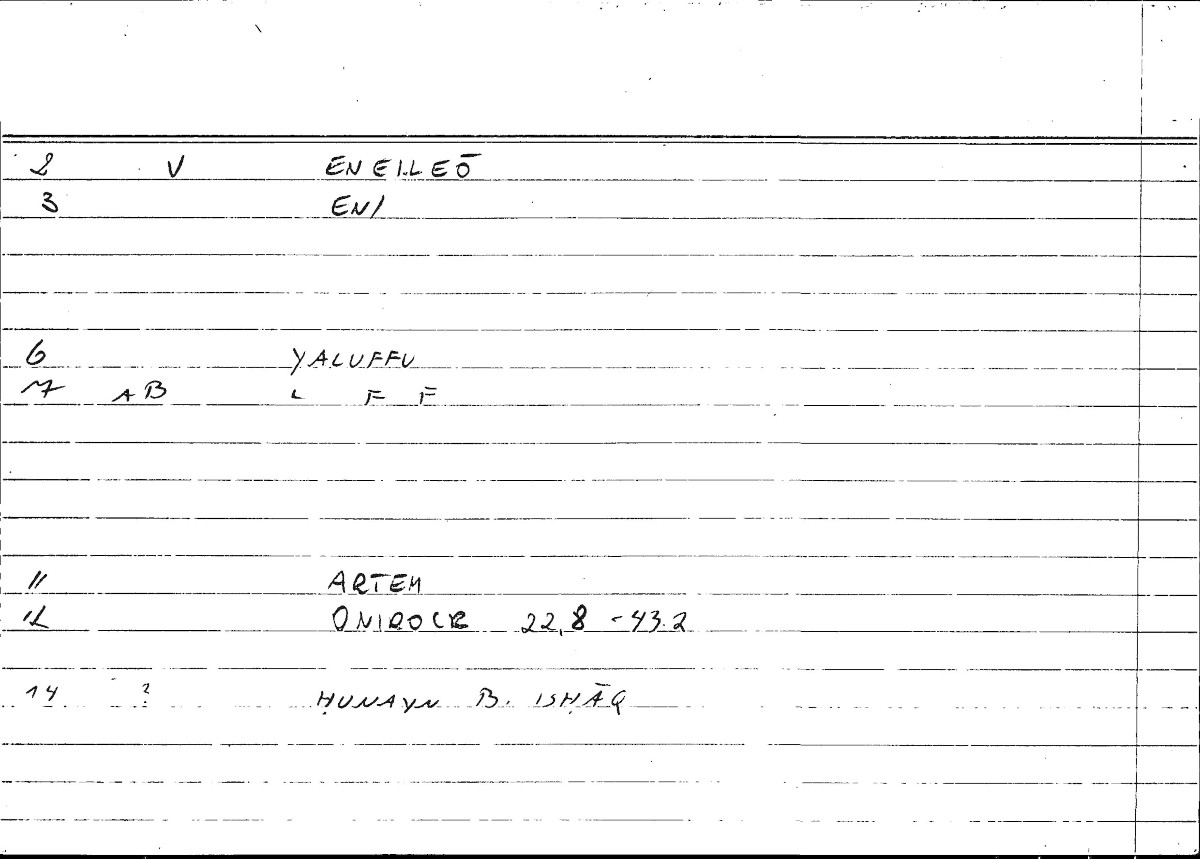 2 V ENEILEŌ
3 EN/
6 YALUFFU
7 AB L F F
11 ARTEM
12 ONIROCR 22,8 - 43.2
14 ? ḤUNAYN B. ISḤĀQ